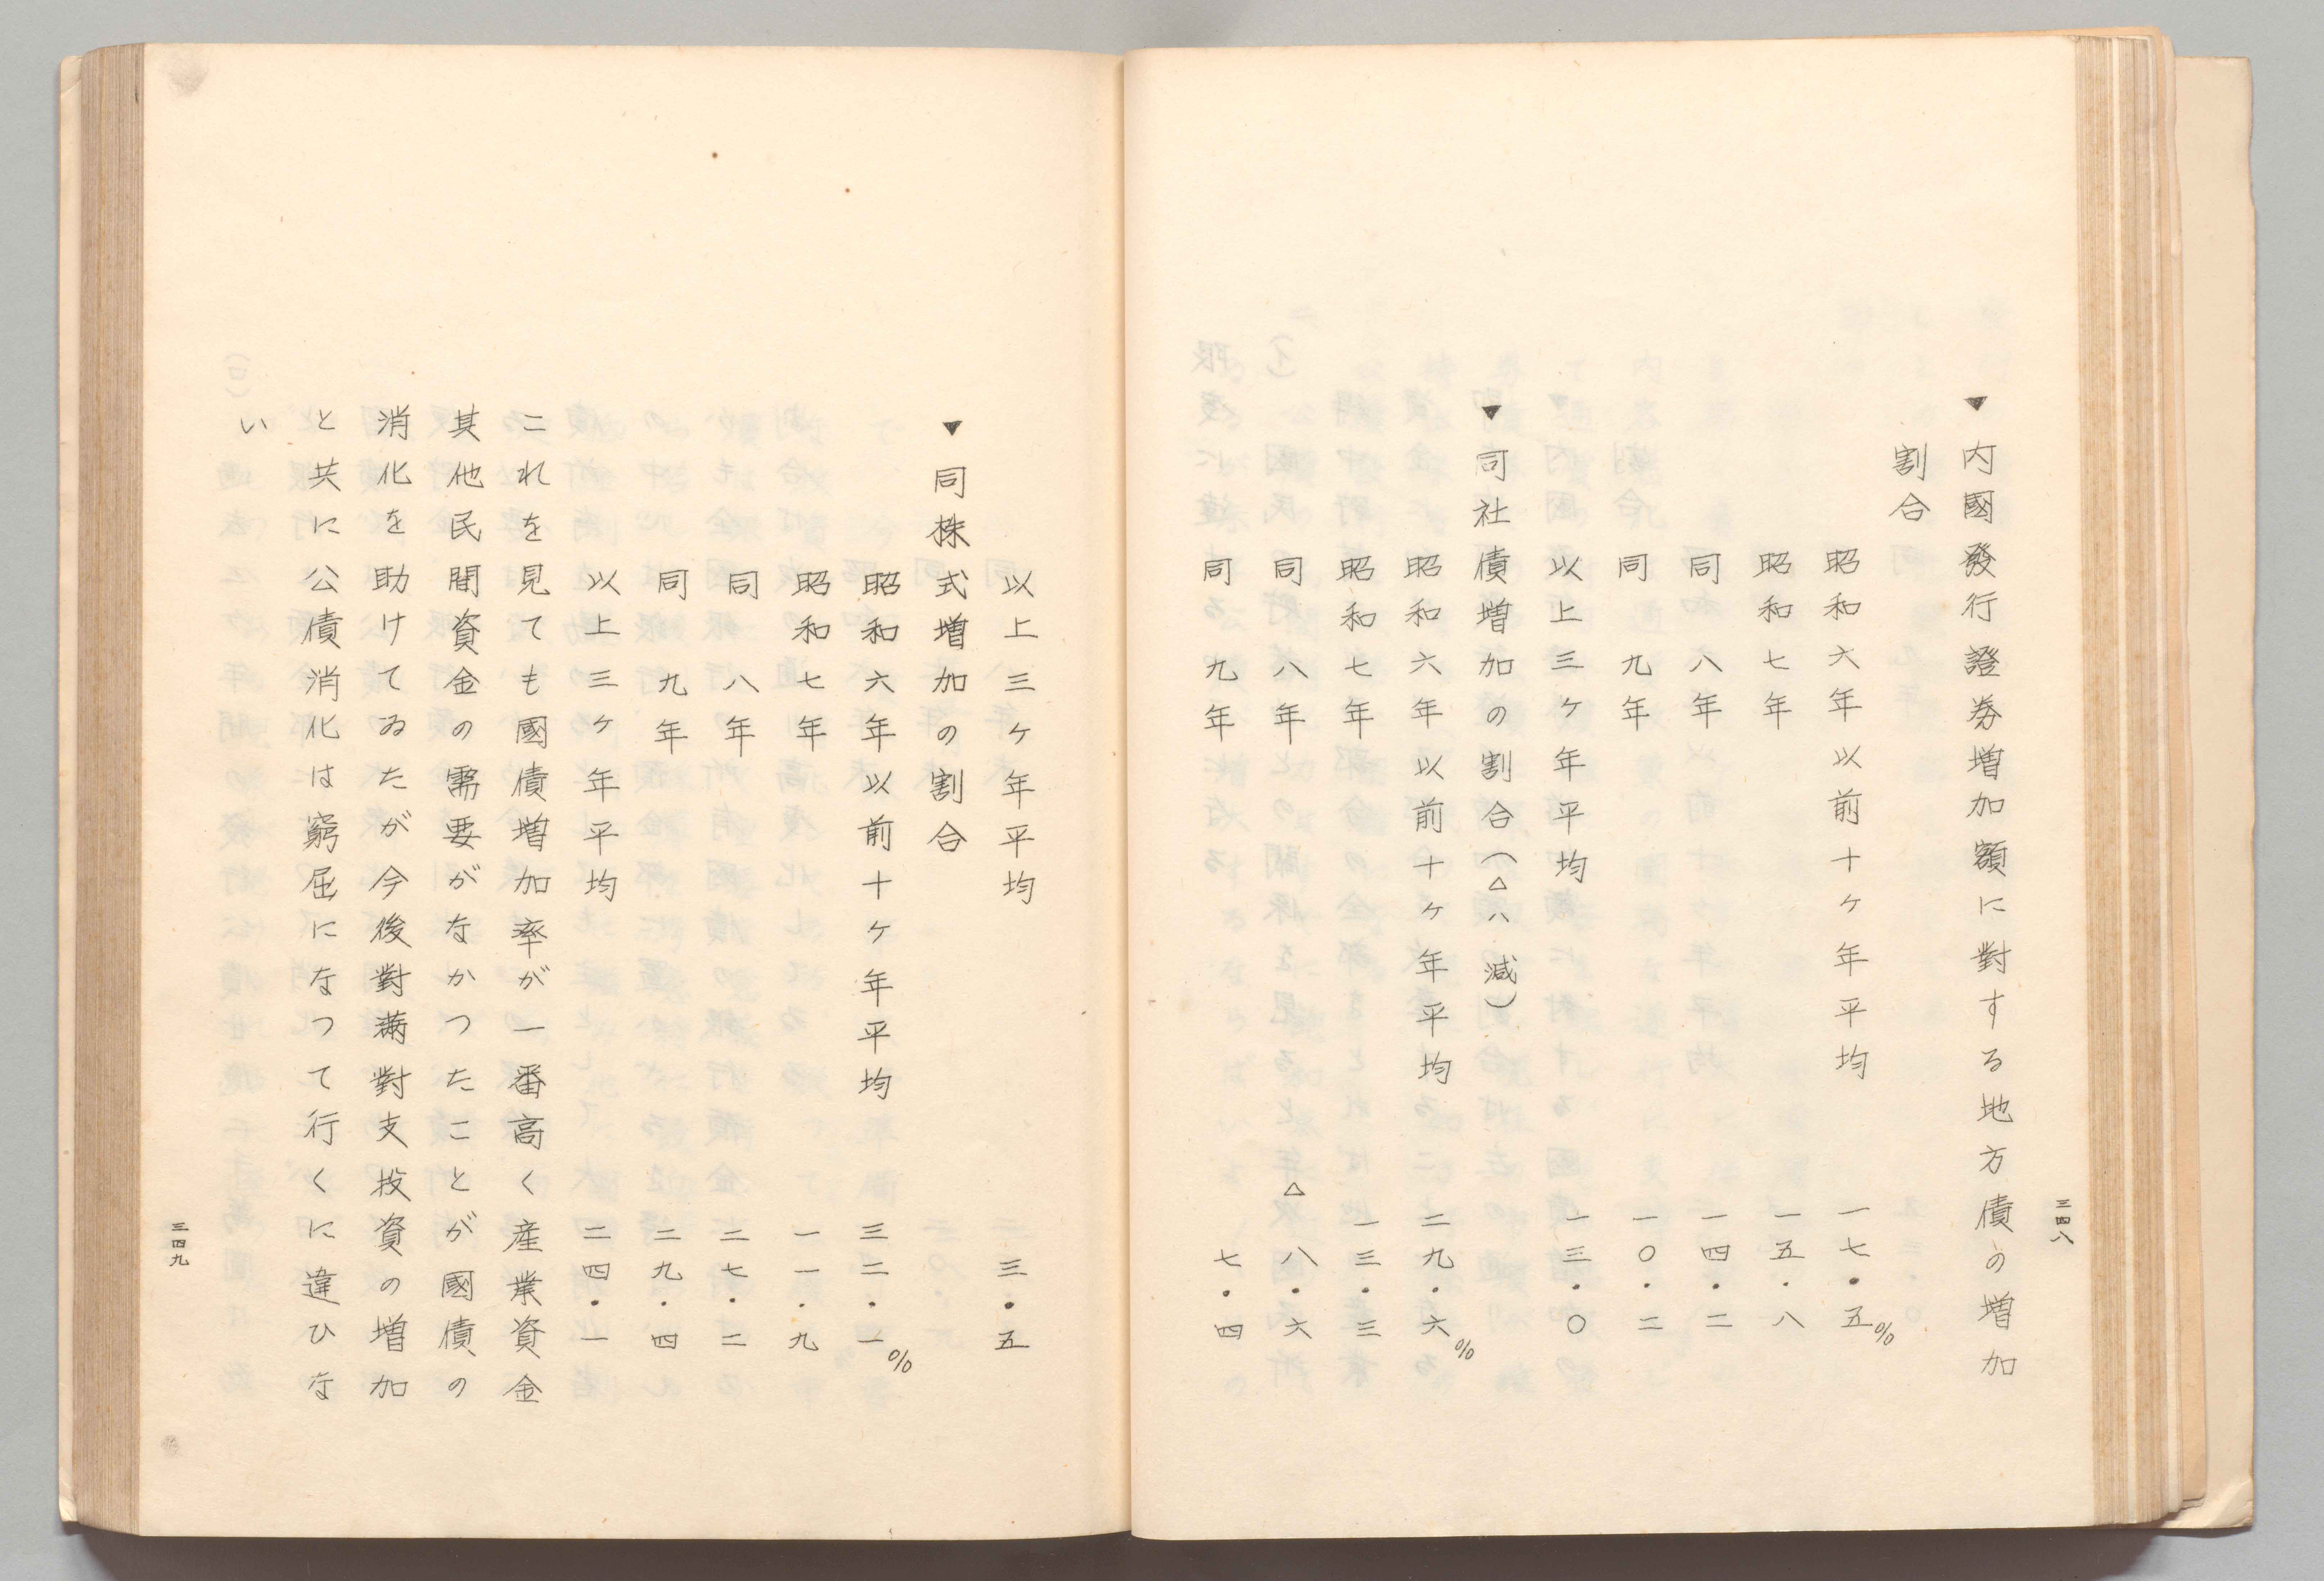 三四八
▼内國發行證券増加額に對する地方債の増加
割合
昭和六年以前十ヶ年平均 一七・五%
昭和七年 一五・八
同 八年 一四・二
同 九年 一〇・二
以上三ヶ年平均 一三・〇
▼同社債増加の割合(△ハ減)
昭和六年以前十ヶ年平均 二九・六%
昭和七年 一三・三
同 八年 △八・六
同 九年 七・四
以上三ヶ年平均 三・五
▼同株式増加の割合
昭和六年以前十ヶ年平均 三二・一%
昭和七年 一一・九
同 八年 二七・二
同 九年 二九・四
以上三ヶ年平均 二四・一
これを見ても國債増加率が一番高く産業資金
其他民間資金の需要がなかつたことが國債の
消化を助けてゐたが今後對満對支投資の増加
と共に公債消化は窮屈になつて行くに違ひな
い
三四九